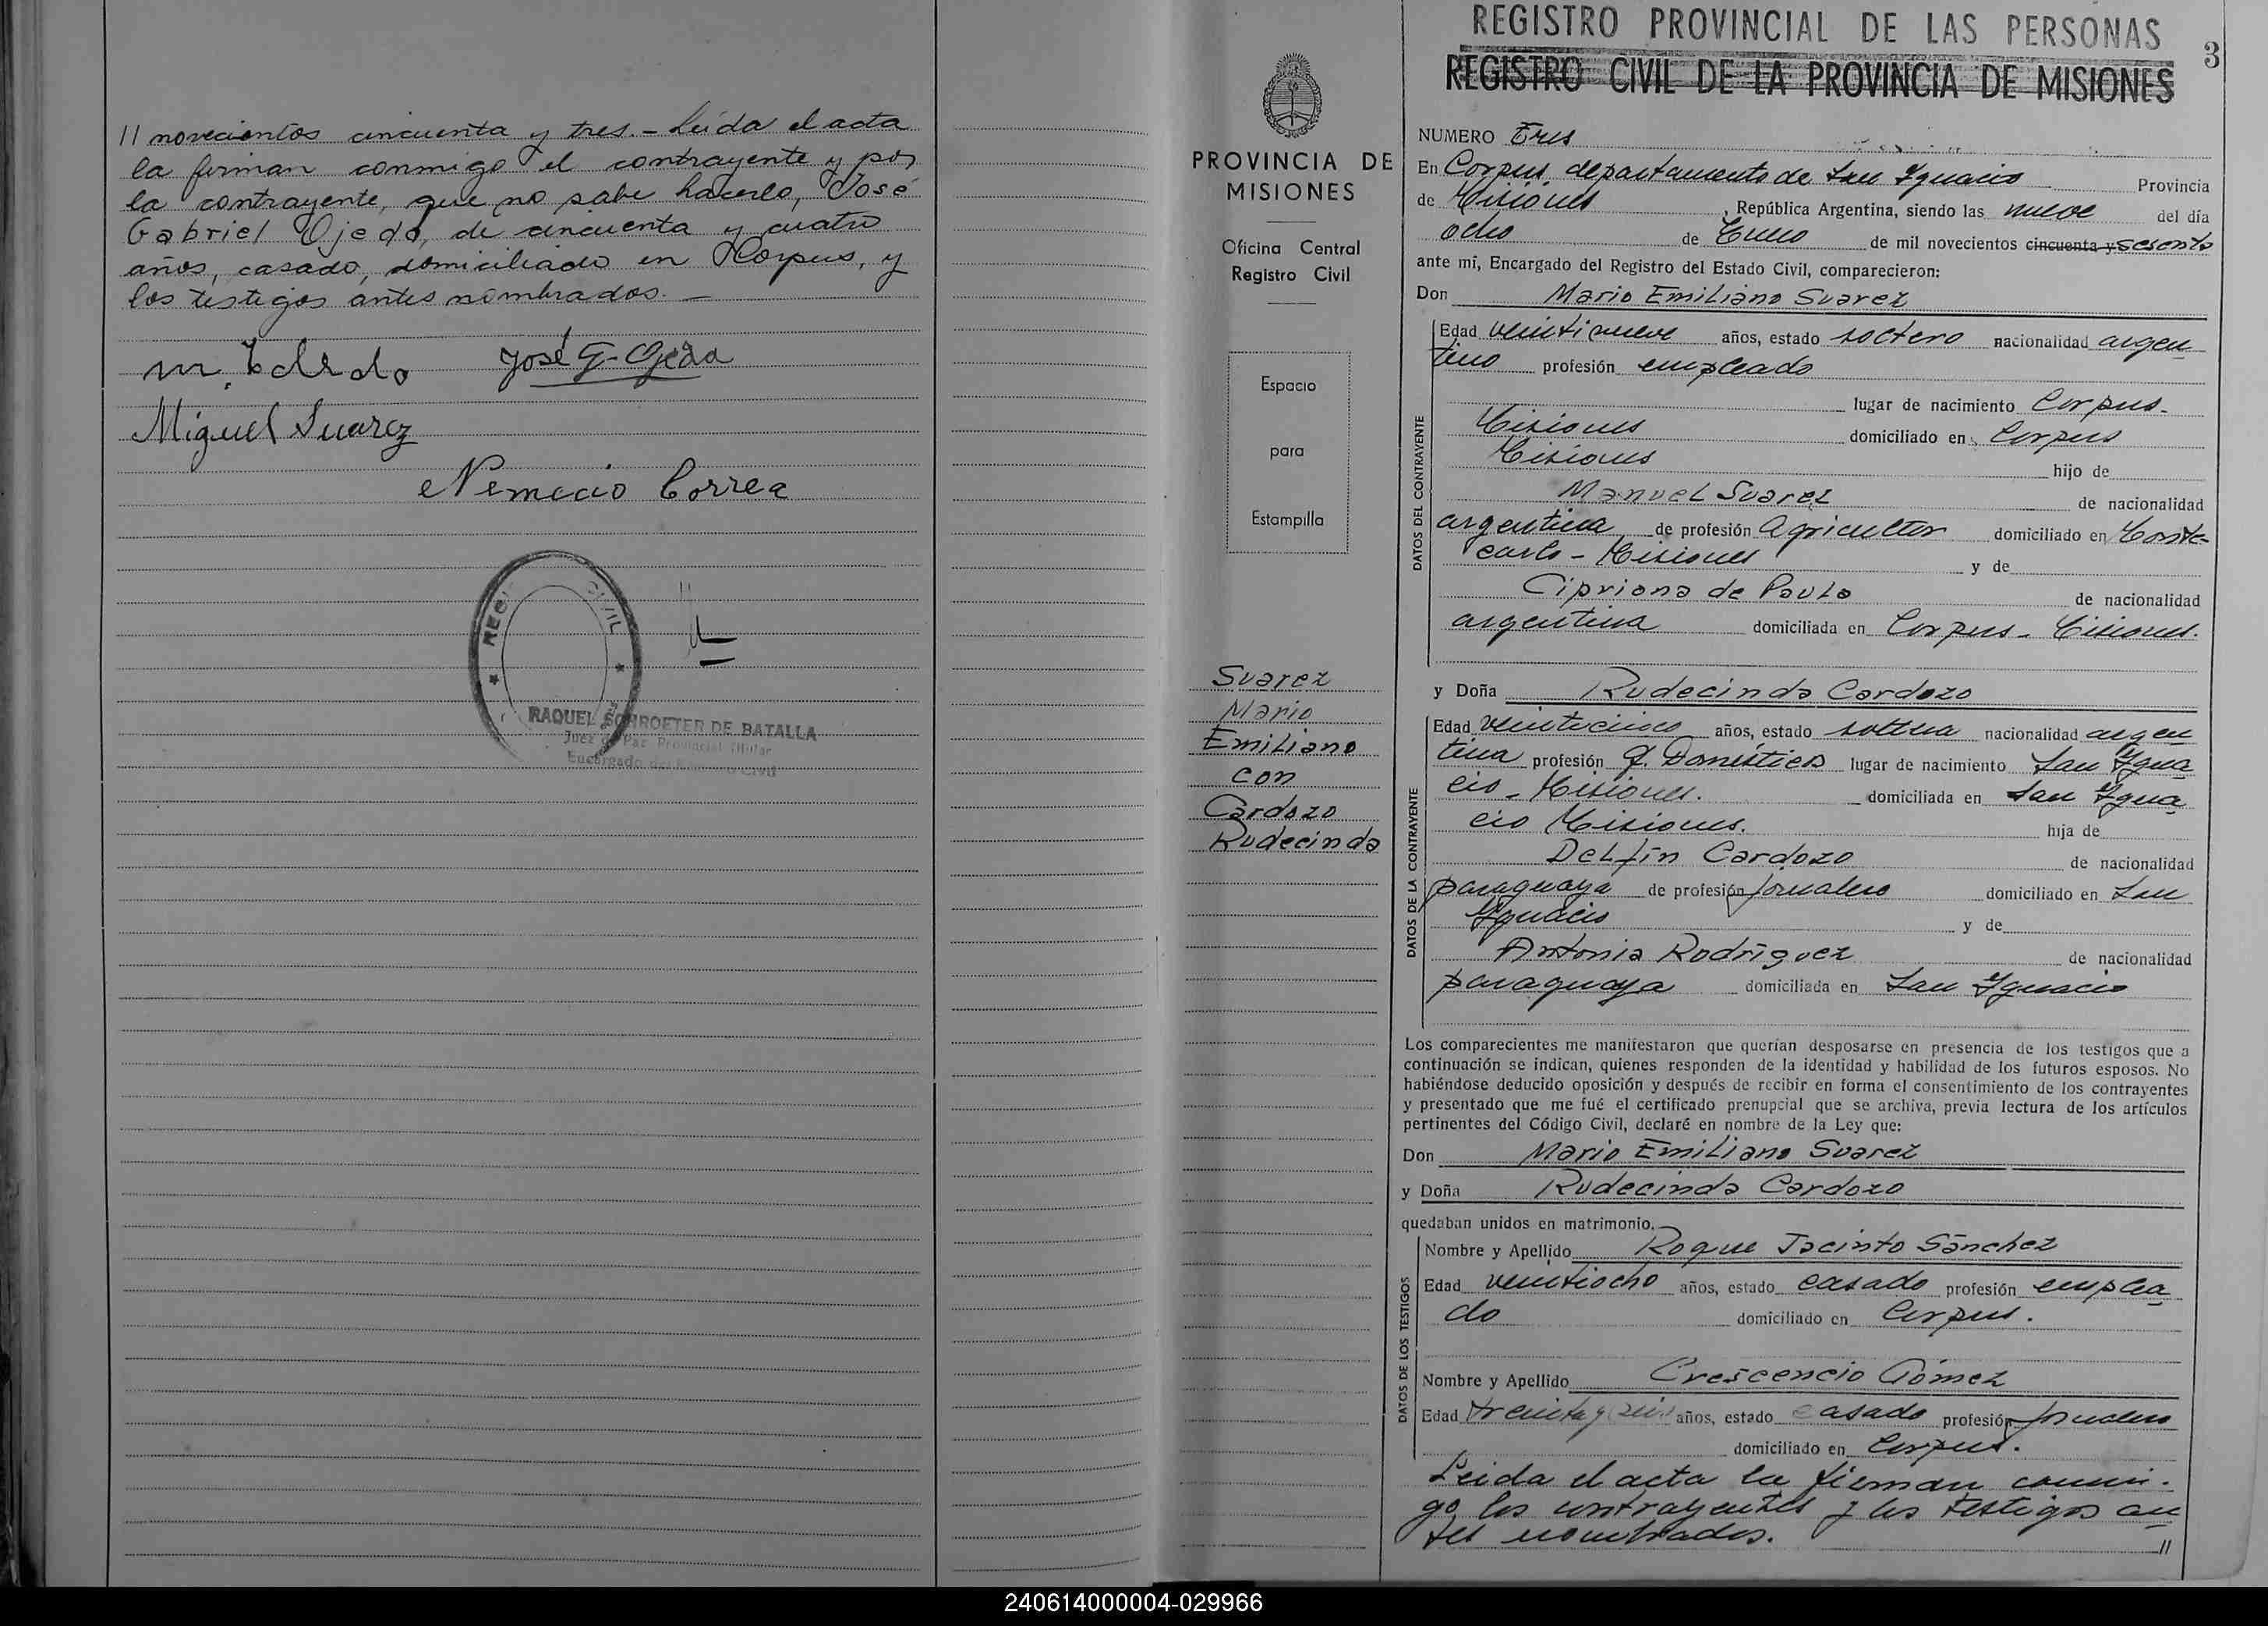 // novecientos cincuenta y tres. - Leída el acta
la firman conmigo el contrayente y por
la contrayente, que no sabe hacerlo, José
Gabriel Ojeda, de cincuenta y cuatro
años, casado, domiciliado en Corpus, y
los testigos antes nombrados. -
José G. Ojeda
Miguel Suarez
Nemecio Correa
REG. CIVIL
RAQUEL SCHROETER DE BATALLA
Juez de Paz Provincial Titular
Encargado del Registro Civil
PROVINCIA DE
MISIONES
Oficina Central
Registro Civil
Espacio
para
Estampilla
Suarez
Mario
Emiliano
con
Cardozo
Rudecinda
REGISTRO PROVINCIAL DE LAS PERSONAS
3
REGISTRO CIVIL DE LA PROVINCIA DE MISIONES
NUMERO Tres
En Corpus, departamento de San Ygnacio Provincia
de Misiones, República Argentina, siendo las nueve del día
ocho de Enero de mil novecientos cincuenta y sesenta
ante mí, Encargado del Registro del Estado Civil, comparecieron:
Don Mario Emiliano Suarez
DATOS DEL CONTRAYENTE
Edad veintinueve años, estado soltero nacionalidad argen
tino profesión empleado
lugar de nacimiento Corpus-
Misiones domiciliado en Corpus
Misiones hijo de
Manuel Suarez de nacionalidad
argentina de profesión Agricultor domiciliado en Monte-
carlo - Misiones y de
Cipriana de Paula de nacionalidad
argentina domiciliada en Corpus - Misiones.
y Doña Rudecinda Cardozo
DATOS DE LA CONTRAYENTE
Edad veinticinco años, estado soltera nacionalidad argen
tina profesión Q. Domésticos lugar de nacimiento San Ygna
cio - Misiones. domiciliada en San Ygna
cio Misiones. hija de
Delfín Cardozo de nacionalidad
paraguaya de profesión jornalero domiciliado en San
Ygnacio y de
Antonia Rodríguez de nacionalidad
paraguaya domiciliada en San Ygnacio
Los comparecientes me manifestaron que querían desposarse en presencia de los testigos que a
continuación se indican, quienes responden de la identidad y habilidad de los futuros esposos. No
habiéndose deducido oposición y después de recibir en forma el consentimiento de los contrayentes
y presentado que me fué el certificado prenupcial que se archiva, previa lectura de los artículos
pertinentes del Código Civil, declaré en nombre de la Ley que:
Don Mario Emiliano Suarez
y Doña Rudecinda Cardozo
quedaban unidos en matrimonio.
DATOS DE LOS TESTIGOS
Nombre y Apellido Roque Jacinto Sánchez
Edad veintiocho años, estado casado profesión emplea
do domiciliado en Corpus.
Nombre y Apellido Crescencio Gómez
Edad treinta y seis años, estado casado profesión jornalero
domiciliado en Corpus.
Leida el acta la firman conmi-
go los contrayentes y los testigos an
tes nombrados. //
240614000004-029966